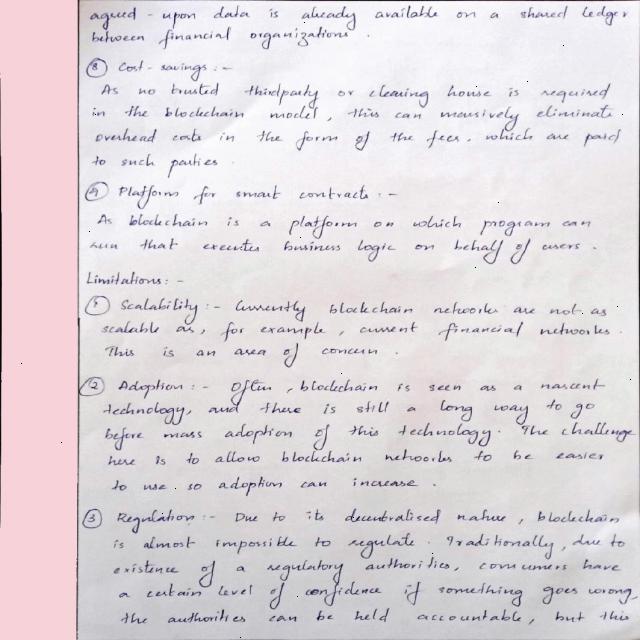 agreed - upon data is already available on a shared ledger
between financial organizations .
⑧ Cost - savings : -
As no trusted thirdparty or clearing house is required
in the blockchain model, this can massively eliminate
overhead costs in the form of the fees. which are paid
to such parties .
⑨ Platform for smart contracts : -
As blockchain is a platform on which program can
run that executes business logic on behalf of users .
Limitations : -
① Scalability : - Currently blockchain networks are not as
scalable as, for example, current financial networks.
This is an area of concern .
② Adoption : - Often , blockchain is seen as a nascent
technology, and there is still a long way to go
before mass adoption of this technology. The challenge
here is to allow blockchain networks to be easier
to use . so adoption can increase .
③ Regulation : - Due to its decentralised nature, blockchain
is almost impossible to regulate . Traditionally, due to
existence of a regulatory authorities, consumers have
a certain level of confidence if something goes wrong,
the authorities can be held accountable, but this